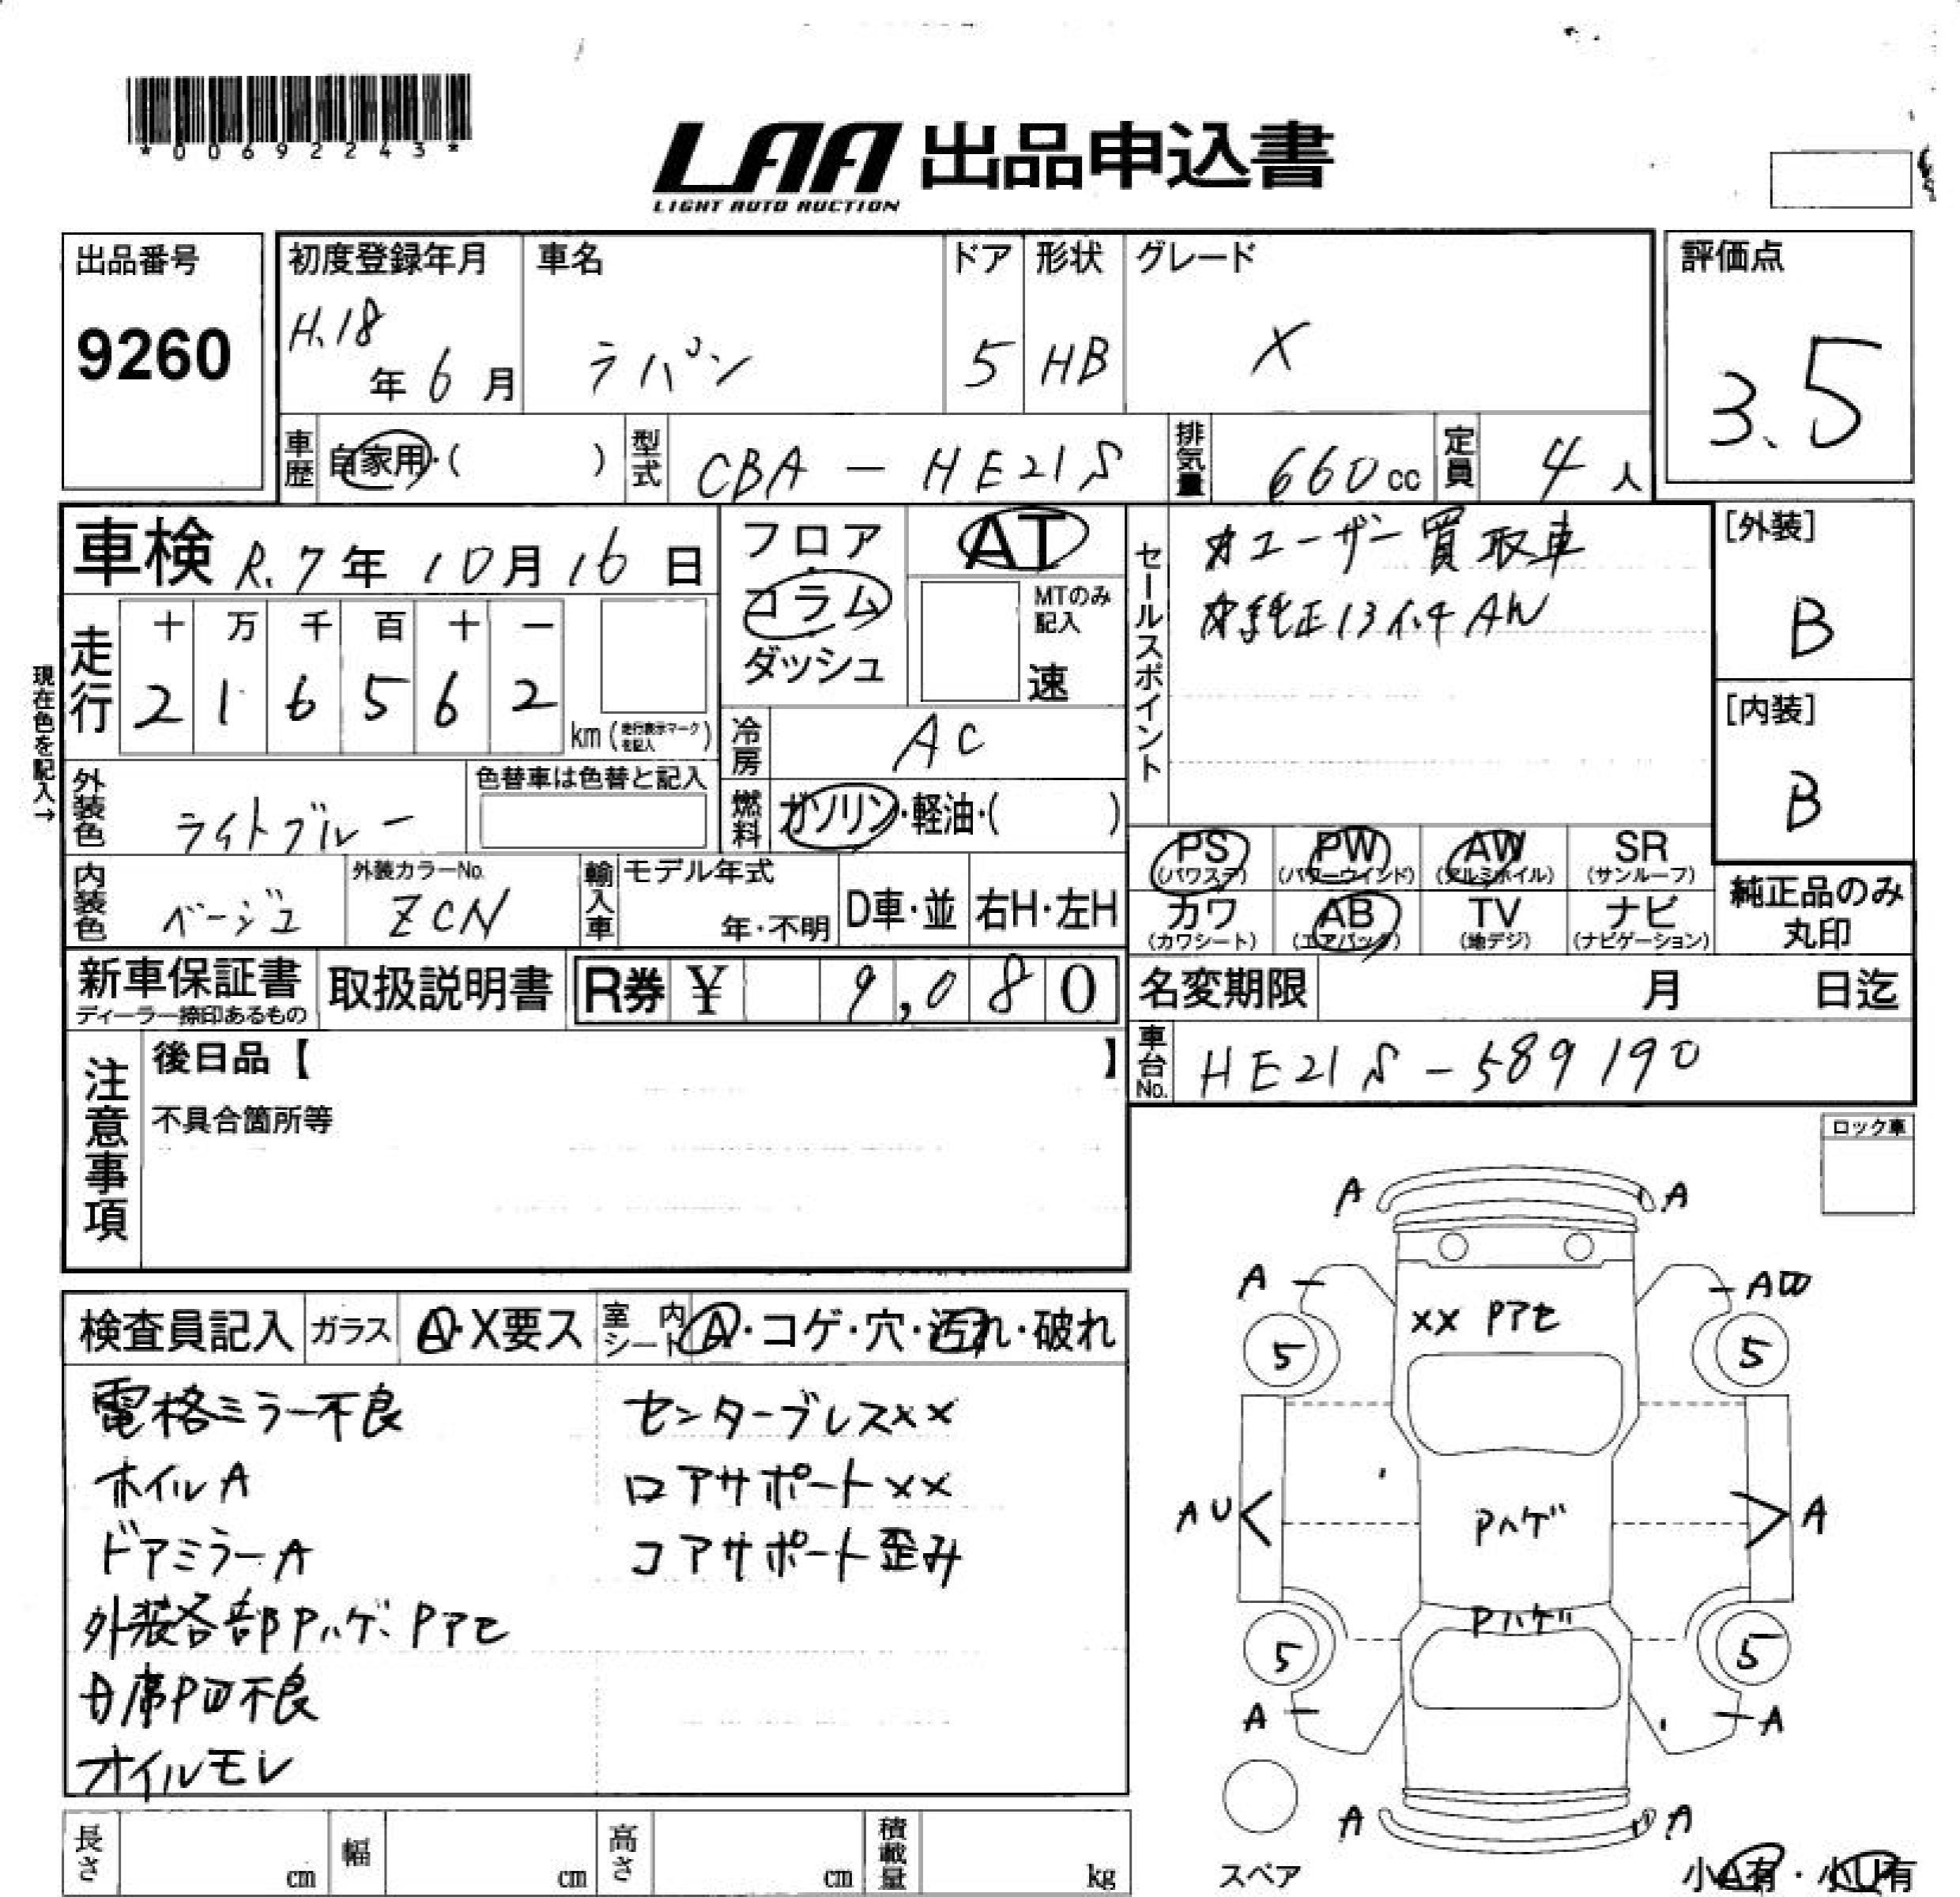 *00692243*
LAA 出品申込書
LIGHT AUTO AUCTION
出品番号
9260
初度登録年月
H.18
年 6 月
車名
ラパン
ドア
5
形状
HB
グレード
X
評価点
3.5
車歴 自家用・( )
型式 CBA - HE21S
排気量 660 cc
定員 4 人
車検 R.7年 10月 16日
走行
十 万 千 百 十 一
2 1 6 5 6 2
km (走行表示マークを記入)
現在色を記入→
フロア
コラム
ダッシュ
AT
MTのみ記入
速
冷房 AC
燃料 ガソリン・軽油・( )
セールスポイント
ユーザー買取車
純正13インチAW
[外装]
B
[内装]
B
外装色 ライトブルー
色替車は色替と記入
内装色 ベージュ
外装カラーNo.
ZCN
輸入車
モデル年式
年・不明
D車・並
右H・左H
PS
(パワステ)
PW
(パワーウインド)
AW
(アルミホイル)
SR
(サンルーフ)
カワ
(カワシート)
AB
(エアバック)
TV
(地デジ)
ナビ
(ナビゲーション)
純正品のみ
丸印
新車保証書
ディーラー捺印あるもの
取扱説明書
R券 ¥ 9,080
名変期限 月 日迄
車台No. HE21S-589190
注意事項
後日品【 】
不具合箇所等
ロック車
検査員記入
ガラス
A・X要ス
室内シート
A・コゲ・穴・汚れ・破れ
電格ミラー不良
ホイルA
ドアミラーA
外装各部Pハゲ、Pアセ
オイルモレ
センターブレス××
ロアサポート××
コアサポート歪み
A
A
A
AW
×× Pアセ
5
5
AU
Pハゲ
A
Pハゲ
5
5
A
A
A
A
スペア
小A有・小U有
長さ cm
幅 cm
高さ cm
積載量 kg